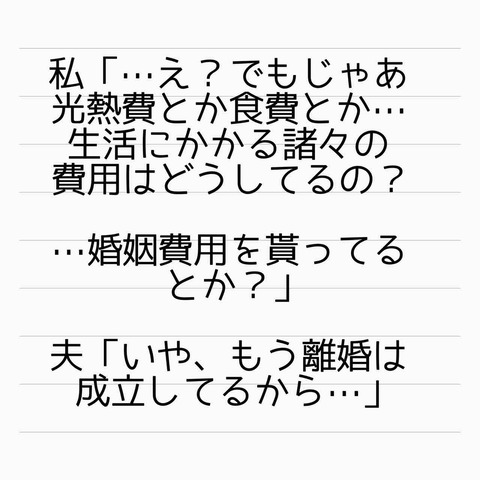 私「…え？でもじゃあ
光熱費とか食費とか…
生活にかかる諸々の
費用はどうしてるの？
…婚姻費用を貰ってる
とか？」
夫「いや、もう離婚は
成立してるから…」